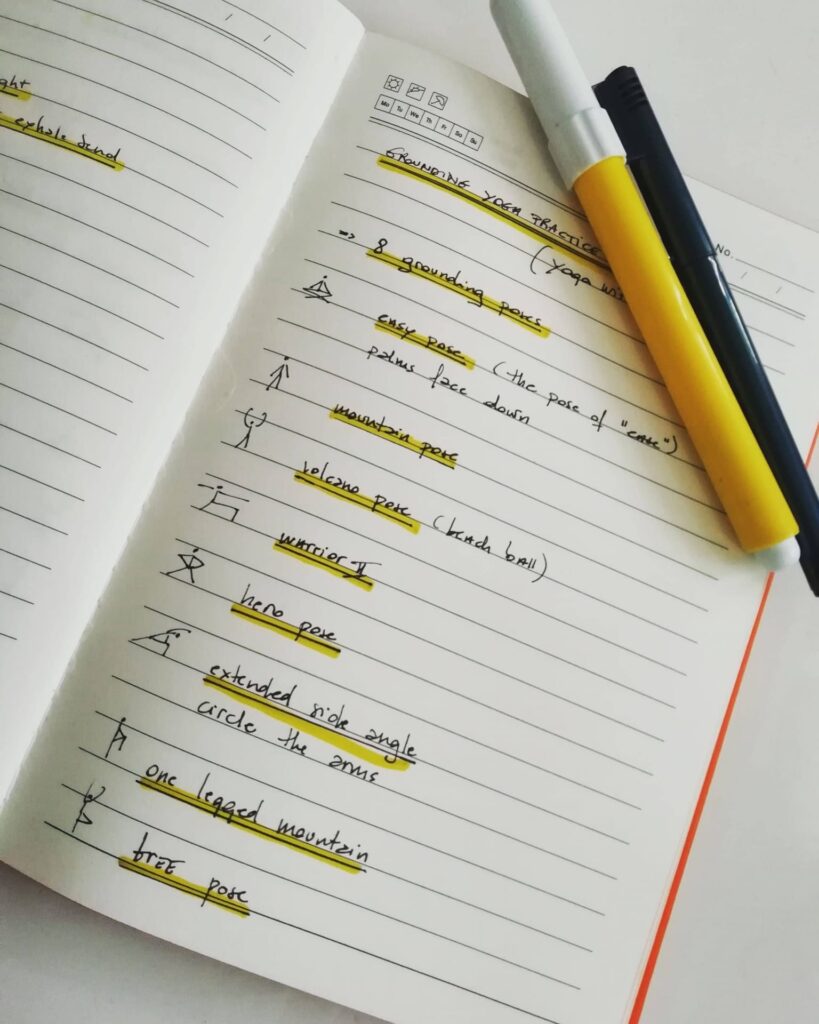 ght
exhale bend
Mo Tu We Th Fr Sa Su
No.
GROUNDING YOGA PRACTICE
(Yoga wi
=> 8 grounding poses
easy pose (the pose of "ease")
palms face down
mountain pose
volcano pose (beach ball)
WARRIOR II
hero pose
extended side angle
circle the arms
one legged mountain
tree pose